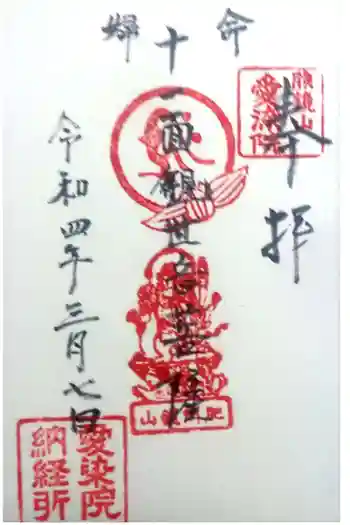 奉拝
愛染院
帰命
十一面観世音菩薩
令和四年三月七日
愛染院
納経所